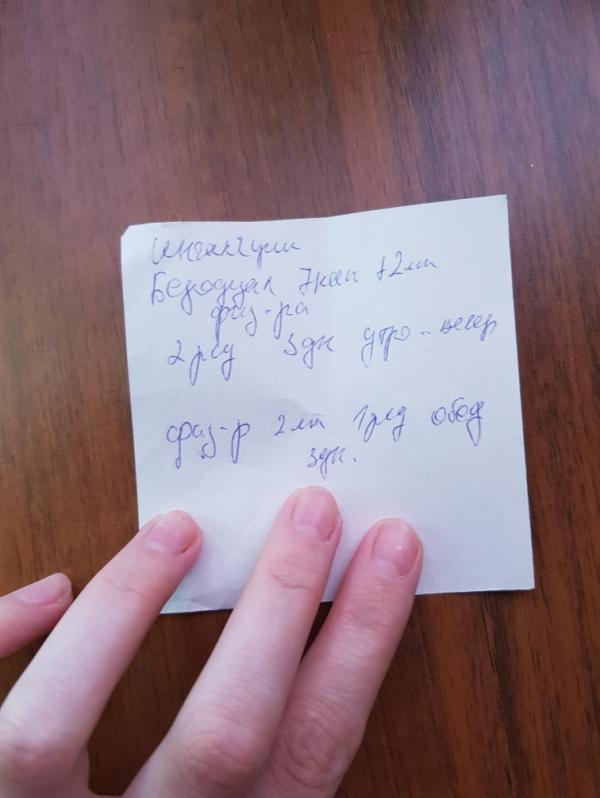 Ингаляции
Беродуал 7кап + 2мл
физ-ра
2 р/су 3дн утро - вечер
физ-р 2мл 1 р/д обед
3дн.